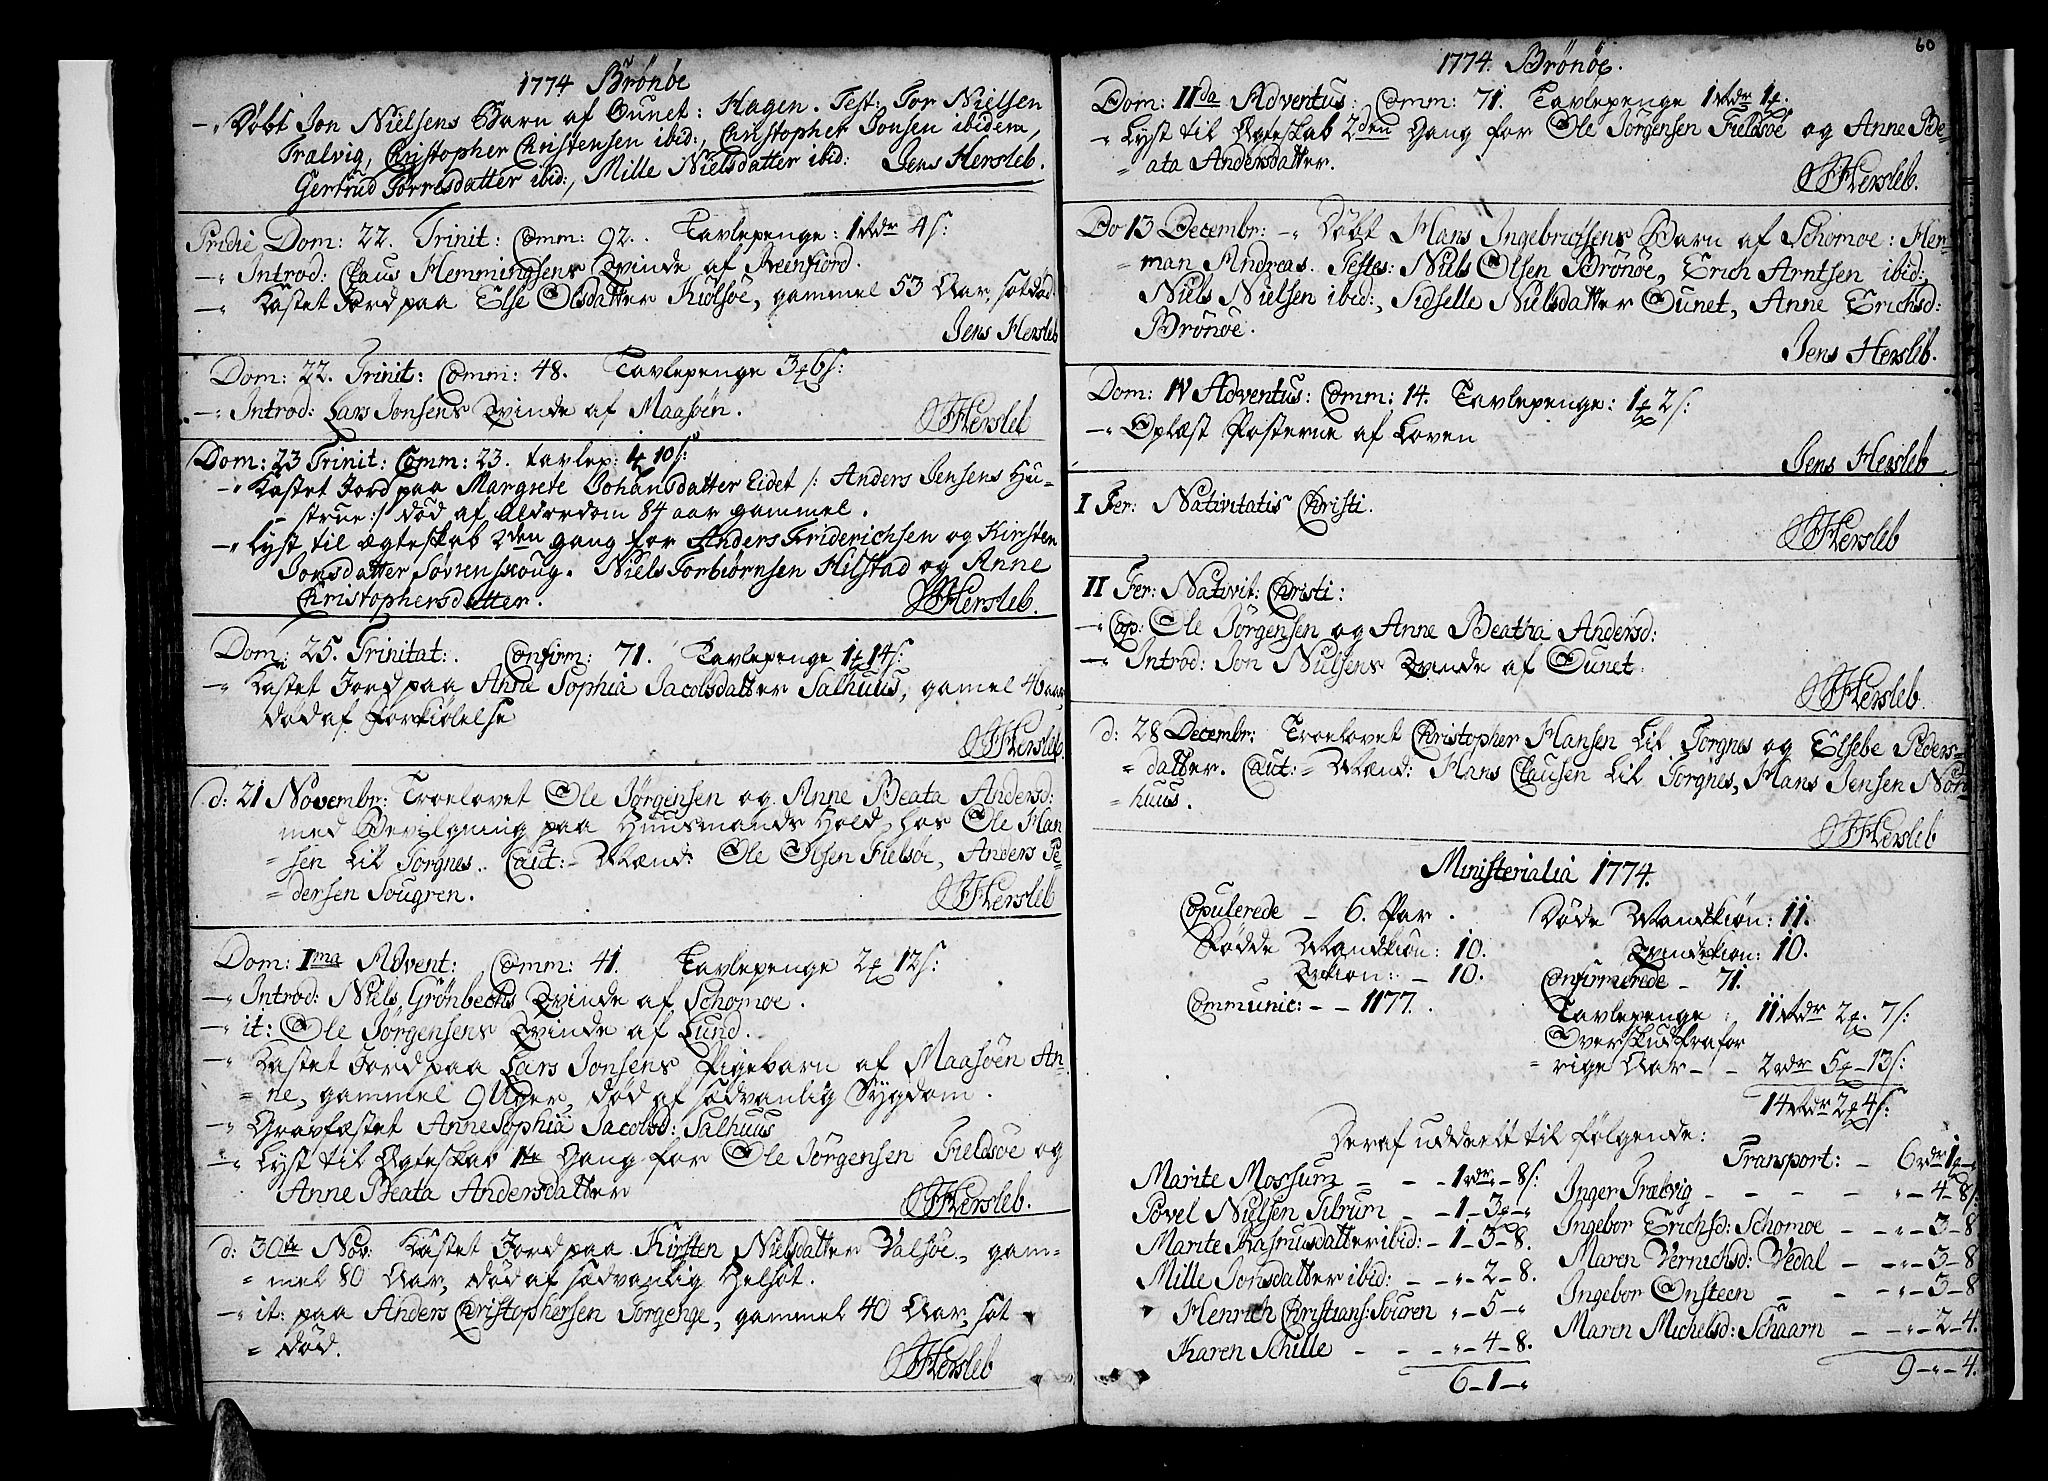 1774 Brönöe
–„ Døbt Jon Nielsens Barn af Sunet: Hagen. Test: Tor Nielsen
Trælvig, Christopher Christensen ibid:, Christopher Jonsen ibidem,
Gertrud Torresdatter ibid:, Mille Nielsdatter ibid: Jens Hersleb.
Pridie Dom: 22. Trinit: Comm: 92. Tavlepenge: 1 rdr 4 s:
–„ Introd: Claus Hemmingsens Qvinde af Reenfiord.
–„ Kastet Jord paa Else Olsdatter Kiølsøe, gammel 53 Aar, sotdød.
Jens Hersleb
Dom: 22. Trinit: Comm: 48. Tavlepenge 3 # 6 s:
–„ Introd: Lars Jonsens Qvinde af Maasøen.
JHersleb
Dom: 23 Trinit: Comm: 23. tavlep: 1 # 10 s:
–„ Kastet Jord paa Margrete Johansdatter Eidet /: Anders Jensens Hu-
strue :/ død af Alderdom 84 aar gammel.
–„ Lyst til ægteskab 2den gang for Anders Friderichsen og Kirsten
Jonsdatter Sørrenskoug. Niels Torbiörnsen Hilstad og Anne
Christophersdatter. JHersleb.
Dom: 25. Trinitat: Confirm: 71. Tavlepenge 1 # 14 s:
–„ Kastet Jord paa Anne Sophia Jacobsdatter Salhuus, gamel 46 aar,
død af Forkiølelse
JHersleb.
d: 21 Novembr: Troelovet Ole Jörgensen og Anne Beata Andersd:
med Bevilgning paa Huusmands Hold, hos Ole Han
= sen Lil Torgnes. Caut: = Mænd: Ole Olsen Fielsøe, Anders Pe-
= dersen Sougren. JHersleb
Dom: 1ma Advent: Comm: 41. Tavlepenge 2 # 12 s:
–„ Introd: Niels Grönbechs Qvinde af Schomoe.
–„ it: Ole Jörgensens Qvinde af Lund.
–„ Kastet Jord paa Lars Jonsens Pigebarn af Maasøen An-
= ne, gammel 9 Uger, død af sædvanlig Sygdom.
–„ Gravfæstet Anne Sophia Jacobsd: Salhuus
–„ Lyst til Ægteskab 1te Gang for Ole Jörgensen Fieldsøe og
Anne Beata Andersdatter JHersleb.
d: 30te Nov: Kastet Jord paa Kirsten Nielsdatter Valsøe, gam-
= mel 80 Aar, død af sædvanlig Helsot.
–„ it: paa Anders Christophersen Torgenge, gammel 40 Aar, sot
= død.
JHersleb
60
1774. Brönöe.
Dom: IIda Adventus: Comm: 71. Tavlepenge 1 rdr 1 #.
–„ Lyst til Ægteskab 2den Gang for Ole Jörgensen Fieldsøe og Anne Be-
= ata Andersdatter.
JHersleb.
Do 13 Decembr: –„ Døbt Hans Ingebrigtsens Barn af Schomoe: Her-
= man Andreas. Testes: Niels Olsen Brönöe, Erich Arntsen ibid:,
Niels Nielsen ibid:, Sidselle Nielsdatter Sunet, Anne Erichsd:
Brönöe.
Jens Hersleb.
Dom: IV Adventus: Comm: 14. Tavlepenge: 1 # 2 s:
–„ Oplæst Posterne af Loven
Jens Hersleb
I Fer: Nativitatis Christi.
JHersleb
II Fer: Nativit: Christi:
–„ Cop: Ole Jörgensen og Anne Beatha Andersd:
–„ Introd: Jon Nielsens Qvinde af Sunet.
JHersleb.
d: 28 Decembr: Troelovet Christopher Hansen Lil Torgnes og Elsebe Peders-
= datter. Caut: = Mænd: Hans Clausen Lil Torgnes, Hans Jensen Nord
= huus.
JHersleb
Ministerialia 1774.
Copulerede – 6. Par. Døde Mandkiön: 11.
Fødde Mandkiön: 10. Qvindekiön: 10.
Qvkiön: – 10. Confirmerede – 71.
Communic: – – 1177. Tavlepenge: 11 rdr 2 #. 7 s:
Overskud fra for
= rige Aar – – 2 rdr 5 # – 13 s:
14 rdr 2 # 4 s:
Deraf uddeelt til følgende:
Marite Mossum – – – 1 rdr „ – 8 s:
Povel Nielsen Tilrum – – 1 – 3 # – „
Marite Rasmusdatter ibid: – 1 – 3 – 8.
Mille Jonsdatter ibid: – – „ – 2 – 8.
Henrich Christians: Souren „ – 5 – „
Karen Schille – – – „ – 4 – 8.
6 – 1 – „
Transport: – 6 rdr 1 # – „
Inger Trælvig – – – – „ – 4 – 8 s:
Ingebor Erichsd: Schomoe – – „ – 3 – 8
Maren Vernichsd: Vedal – – „ – 3 – 8
Ingebor Onsteen – – – „ – 3 – 8
Maren Michelsd: Schaarn – – „ – 2 – 4.
9 – „ – 4.